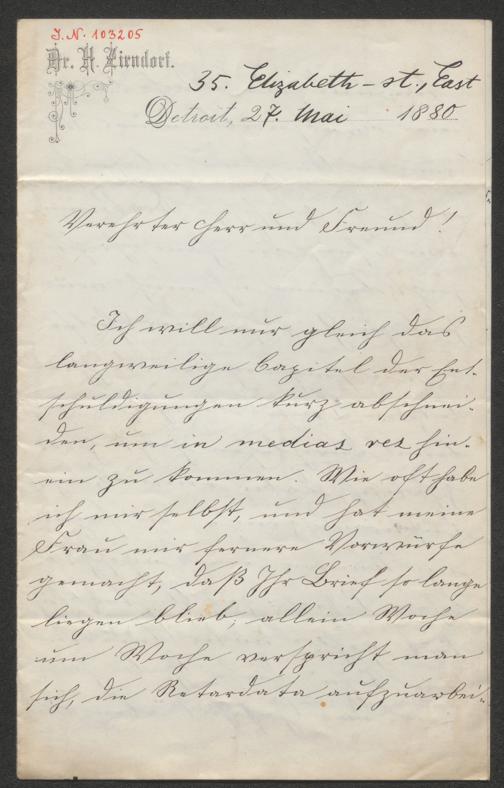 J.N. 103205
Dr. H. Zirndorf.
35. Elizabeth-st., East
Detroit, 27. Mai 1880
Verehrter Herr und Freund!
Ich will nur gleich das
langweilige Capitel der Ent-
schuldigungen kurz abschnei-
den, um in medias res hin-
ein zu kommen. Wie oft habe
ich mir selbst, und hat meine
Frau mir fernere Vorwürfe
gemacht, daß Ihr Brief so lange
liegen blieb; allein Woche
um Woche verspricht man
sich, die Retardata aufzuarbei-